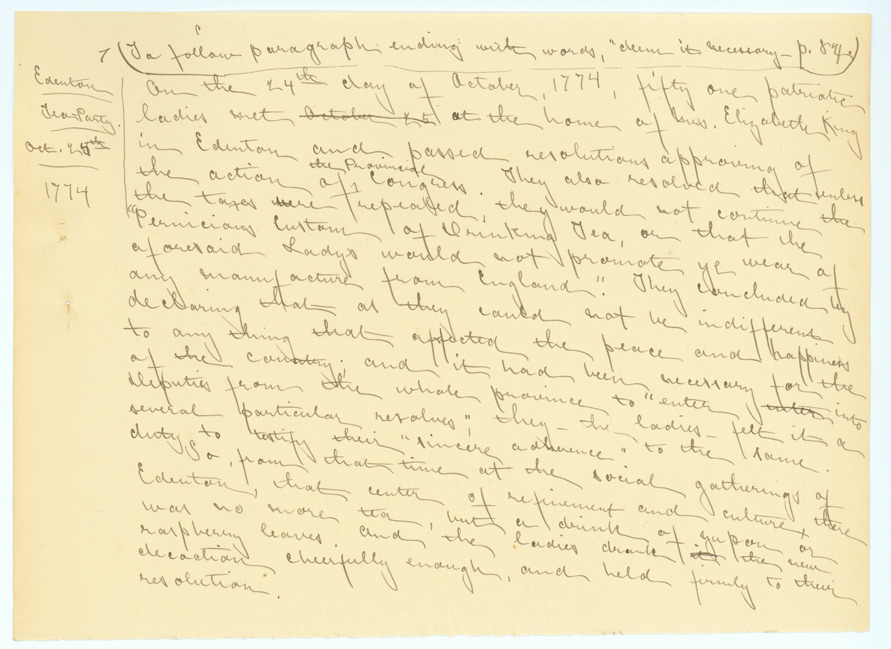 7 (To follow paragraph ending with words, "deem it necessary - p.
Edenton
Tea Party.
Oct. 25th
1774
On the 24th day of October, 1774, fifty one patriotic
ladies met October 25 at the home of Mrs. Elizabeth King
in Edenton and passed resolutions approving of
the action of the Provincial Congress. They also resolved that unless
the taxes were repealed, they would not continue the
"Pernicious Custom of Drinking Tea, or that the
aforesaid Ladys would not promote ye wear of
any manufacture from England". They concluded by
declaring that as they could not be indifferent
to any thing that affected the peace and happiness
of the country; and it had been necessary for the
deputies from the whole province to "enter into into
several particular resolves", they - the ladies - felt it a
duty to testify their "sincere adherence" to the same.
So, from that time at the social gatherings of
Edenton, that center of refinement and culture, there
was no more tea, but a drink of yupon or
raspberry leaves and the ladies drank the new
decoction cheerfully enough, and held firmly to their
resolution".